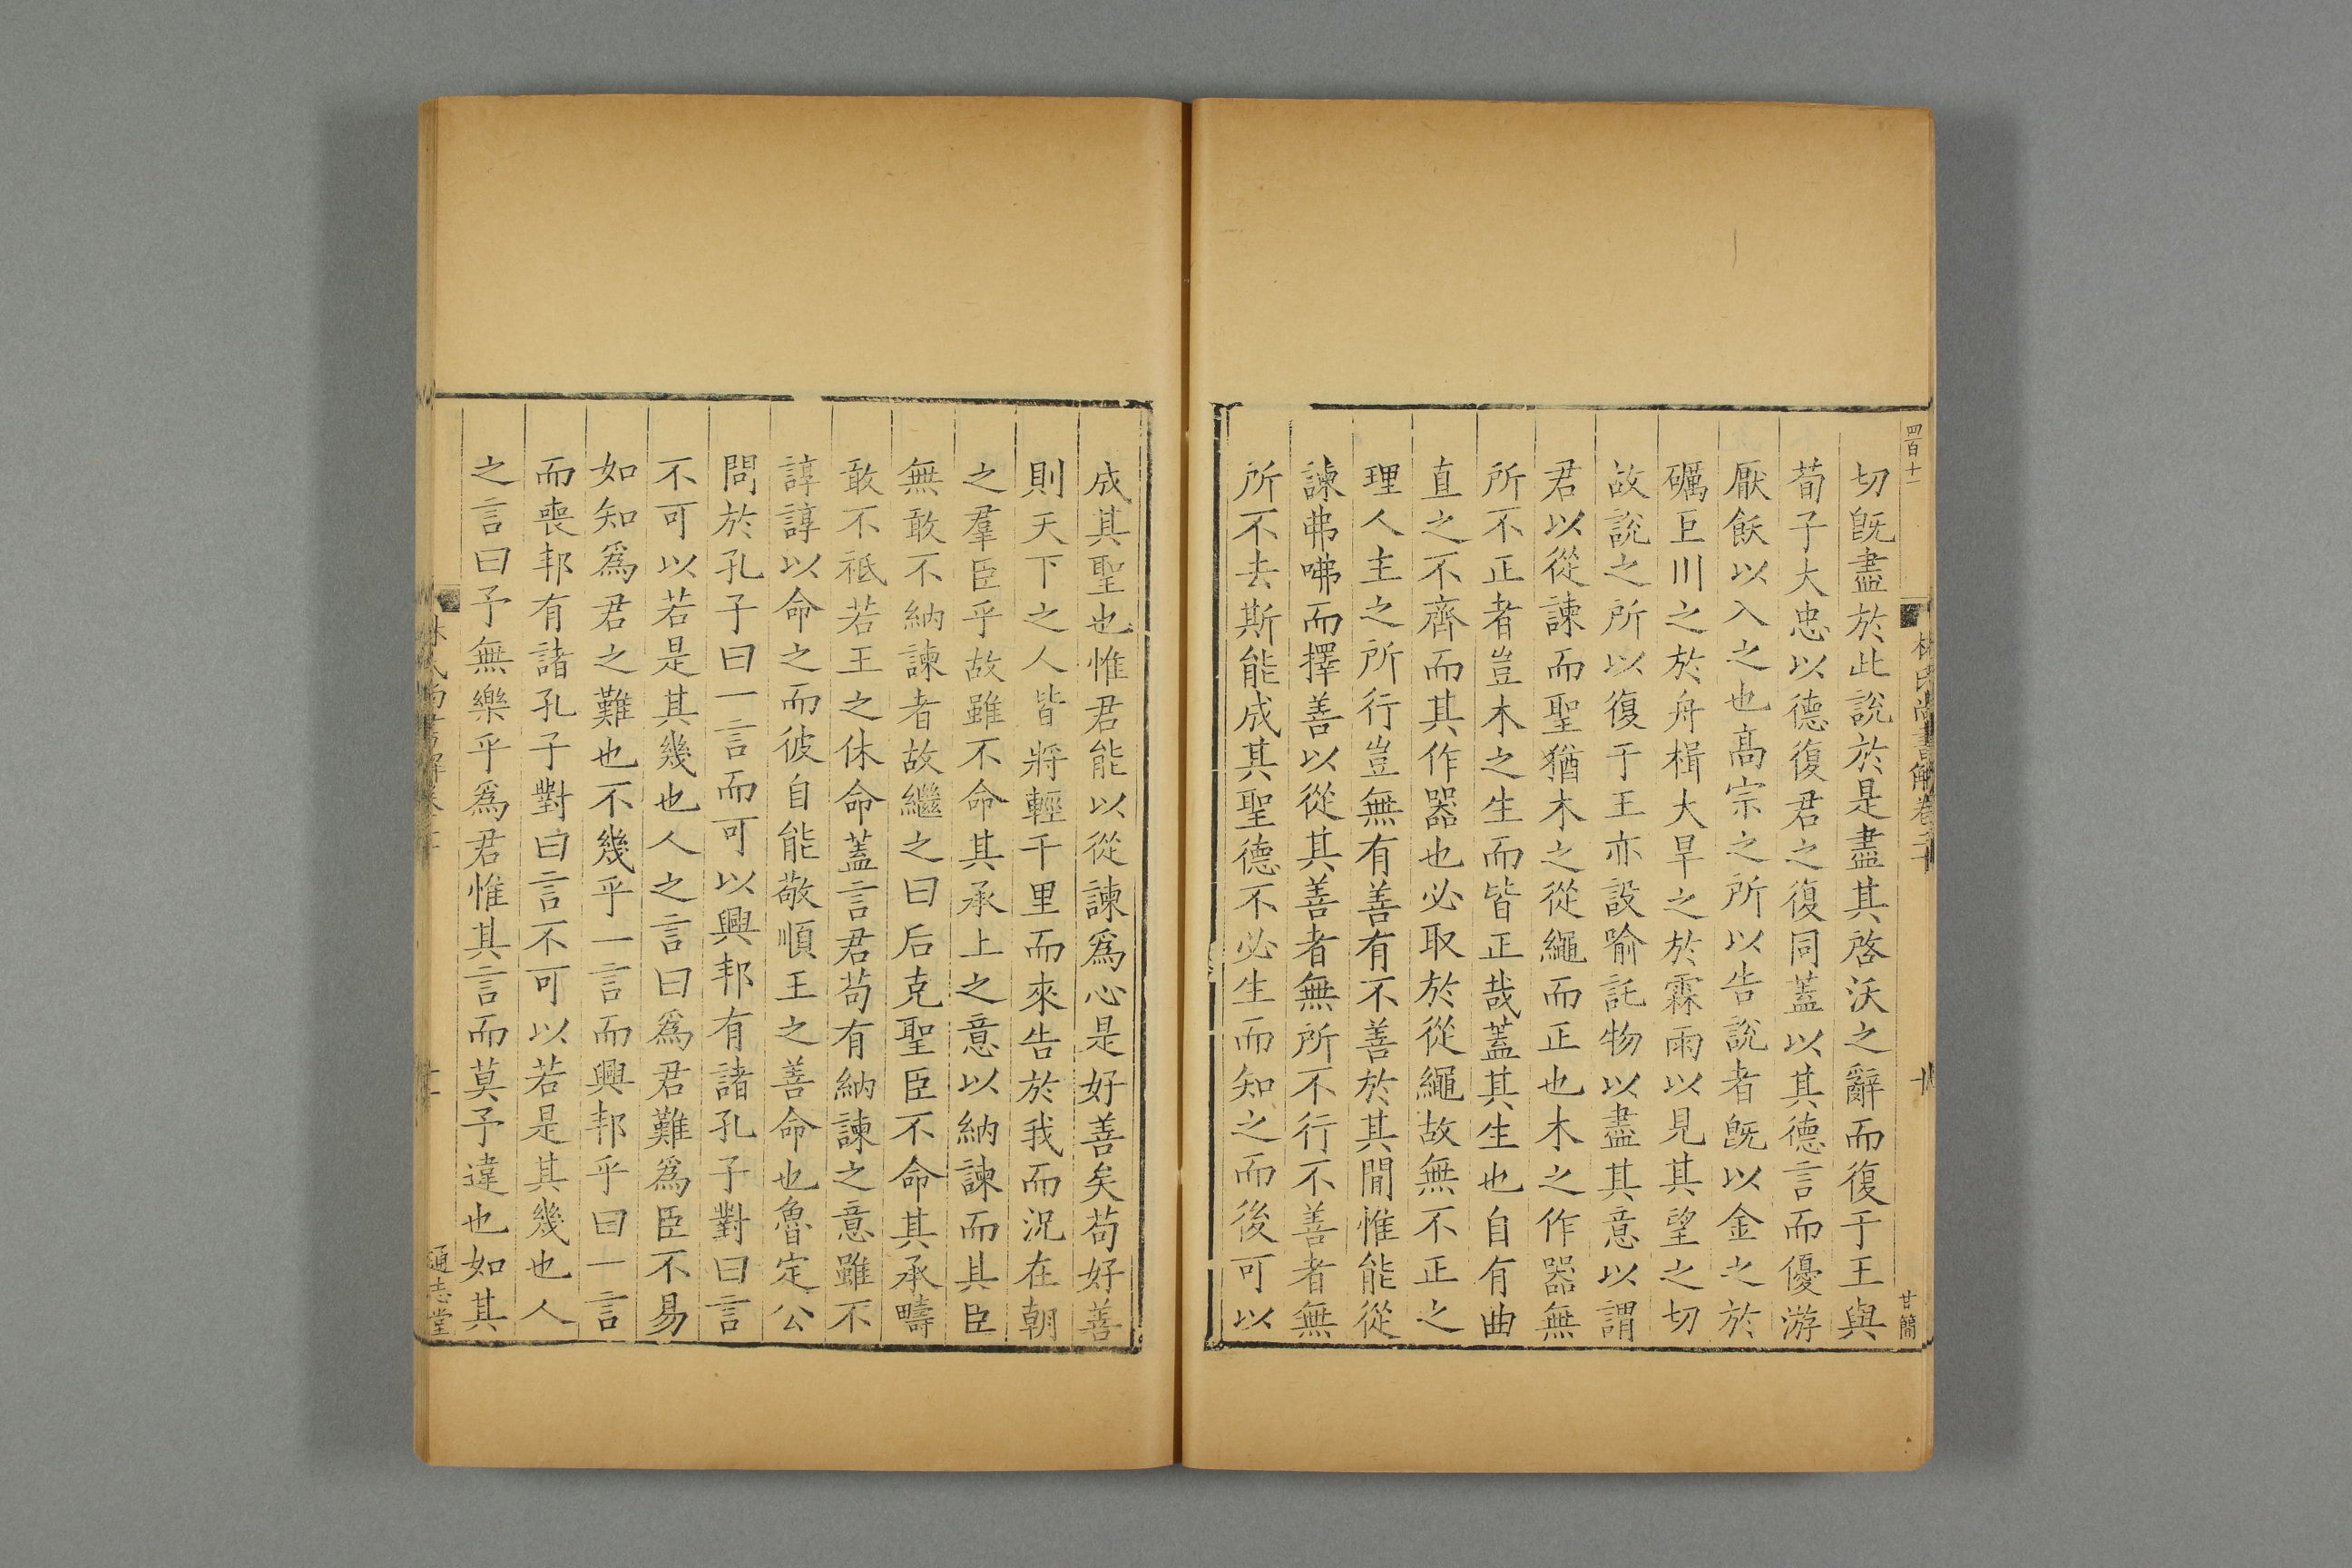 四百十一
林氏尚書解卷二十
廿簡
切旣盡於此說於是盡其啓沃之辭而復于王與
荀子大忠以德復君之復同蓋以其德言而優游
厭飫以入之也髙宗之所以告說者旣以金之於
礪巨川之於舟楫大旱之於霖雨以見其望之切
故說之所以復于王亦設喻託物以盡其意以謂
君以從諫而聖猶木之從繩而正也木之作器無
所不正者豈木之生而皆正哉蓋其生也自有曲
直之不齊而其作器也必取於從繩故無不正之
理人主之所行豈無有善有不善於其間惟能從
諫弗咈而擇善以從其善者無所不行不善者無
所不去斯能成其聖德不必生而知之而後可以
成其聖也惟君能以從諫爲心是好善矣苟好善
則天下之人皆將輕千里而來告於我而況在朝
之羣臣乎故雖不命其承上之意以納諫而其臣
無敢不納諫者故繼之曰后克聖臣不命其承疇
敢不祗若王之休命蓋言君苟有納諫之意雖不
諄諄以命之而彼自能敬順王之善命也魯定公
問於孔子曰一言而可以興邦有諸孔子對曰言
不可以若是其幾也人之言曰爲君難爲臣不易
如知爲君之難也不幾乎一言而興邦乎曰一言
而喪邦有諸孔子對曰言不可以若是其幾也人
之言曰予無樂乎爲君惟其言而莫予違也如其
通志堂